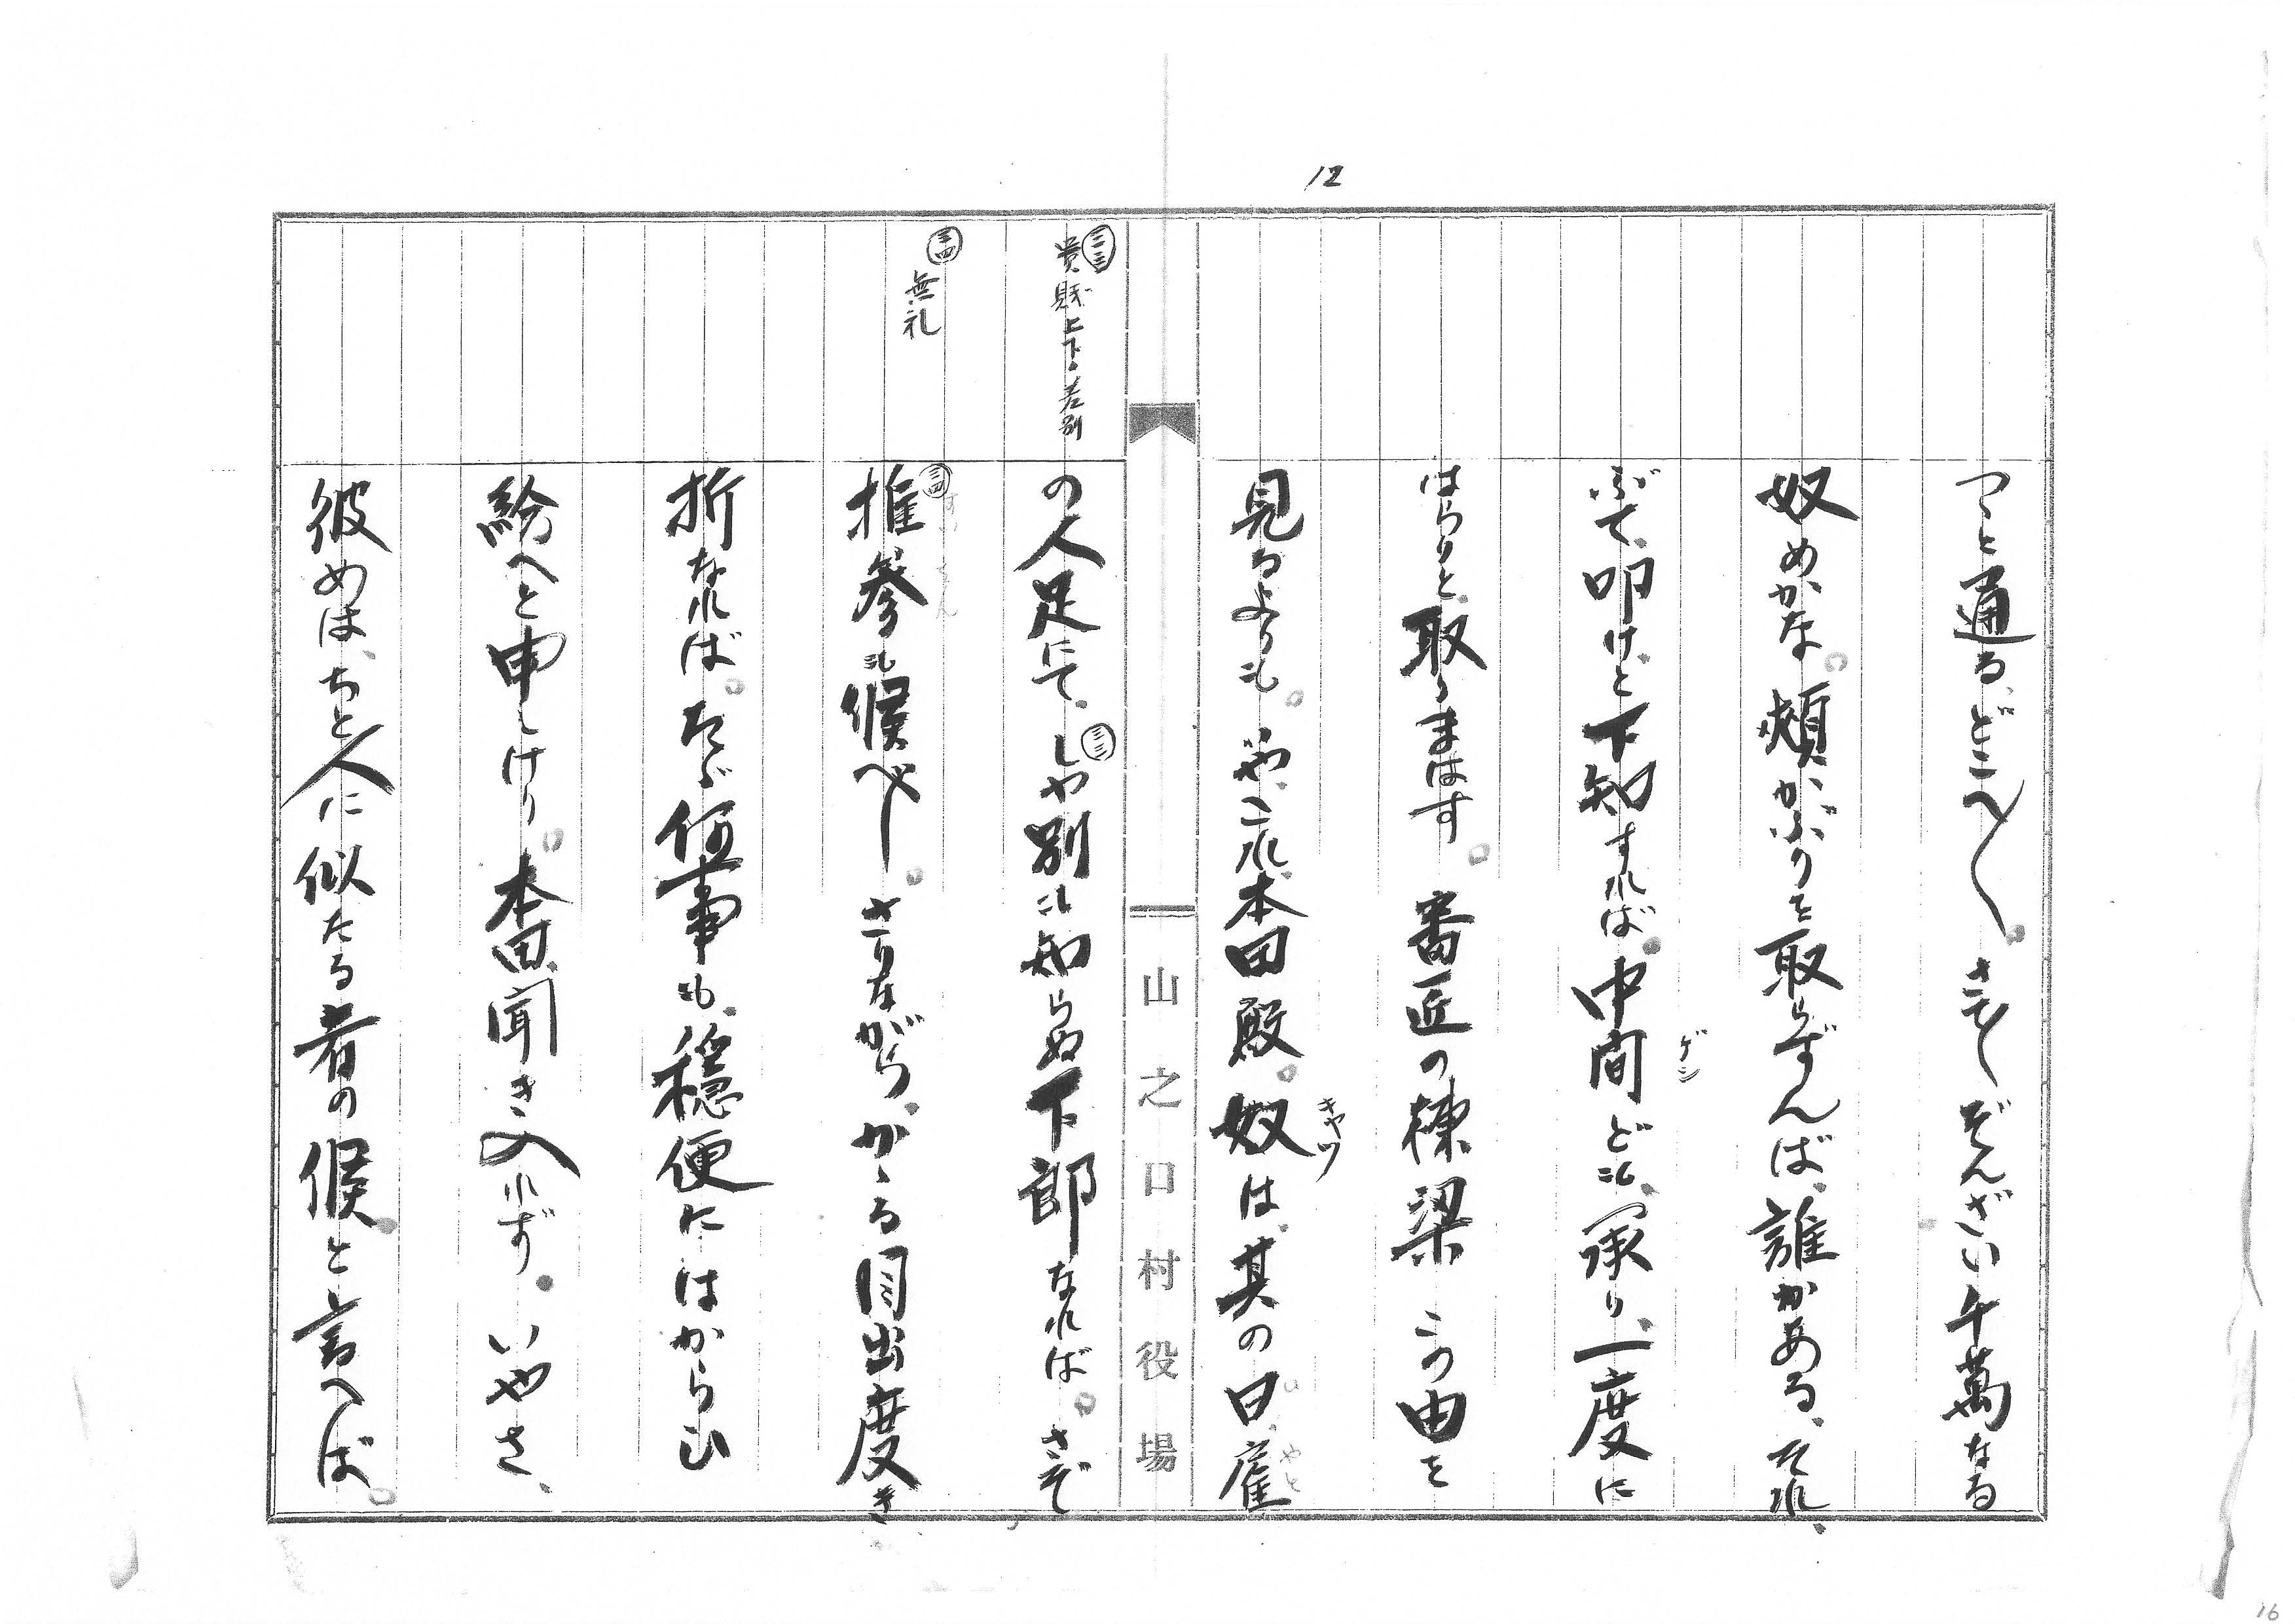 12
つゝと通る、どこへ〳〵。さて〳〵ぞんざい千萬なる
奴めかな。頰かぶりを取らずんば、誰かある、それ、
ぶて、叩けと下知すれば。中間ども、承り、一度に
ゲン
はらりと、取りまはす。番匠の棟梁この由を
見るよりも。や、これ、本田殿。奴は、其の日、雇
キヤツ
ひ
やと
山之口村役場
㉝
貴賎上下の差別
の人足にて、しや別も知らぬ下郎なれば。さぞ
㉝
㉞
無礼
推參も候べし。さりながら、かゝる目出度き
㉞
すいさん
折なれば。たゞ何事も、穏便にはからひ
給へと申しけり。本田、聞き入れず。いやさ、
彼めは、ちと人に似たる者の候と言へば。
16